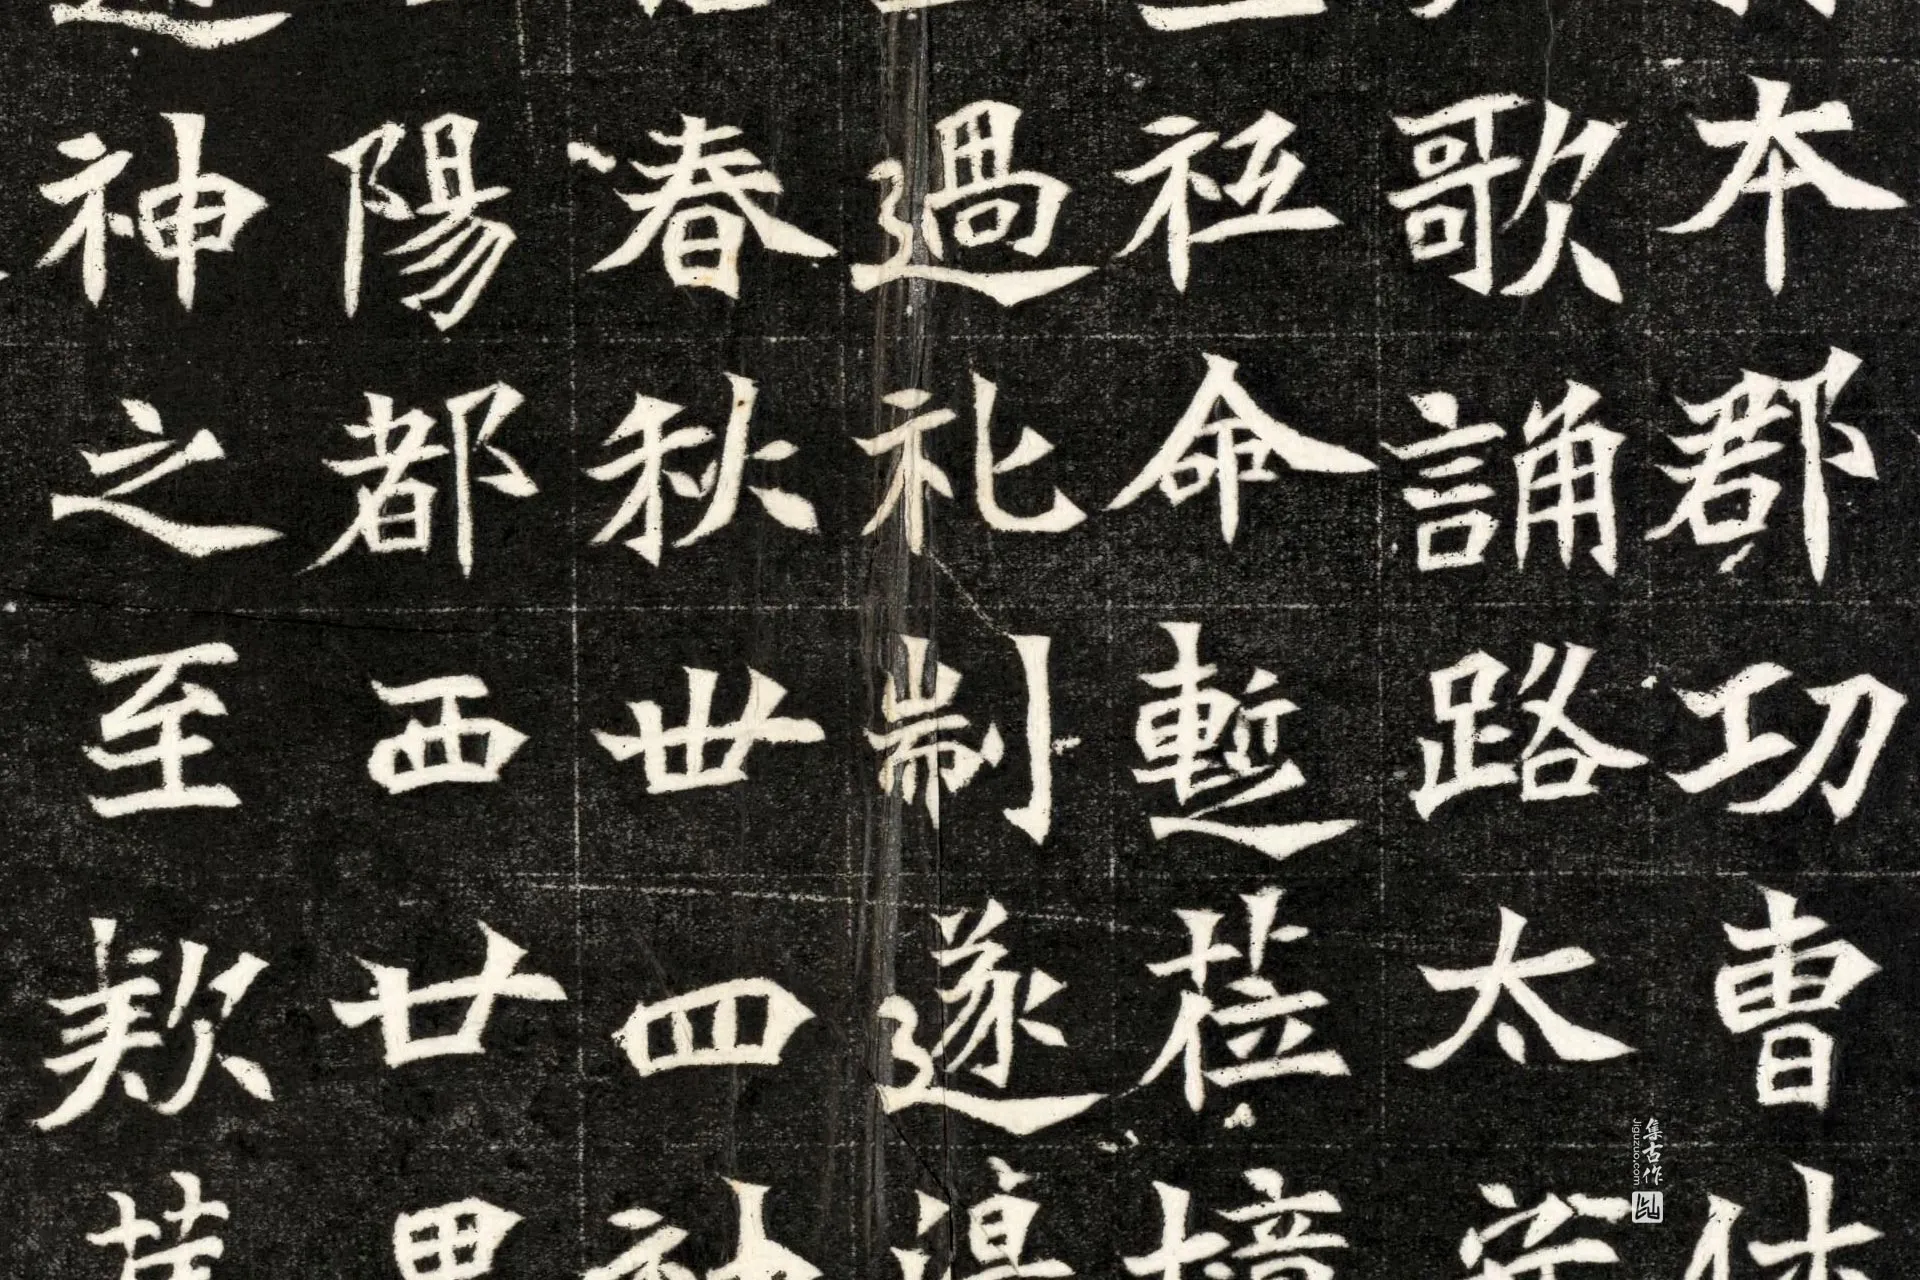 本郡功曹
歌誦路太
祗命蹔莅
過礼制遂
春秋卌四
陽都西廿
神之至欵
集古作
Jiguzuo.com